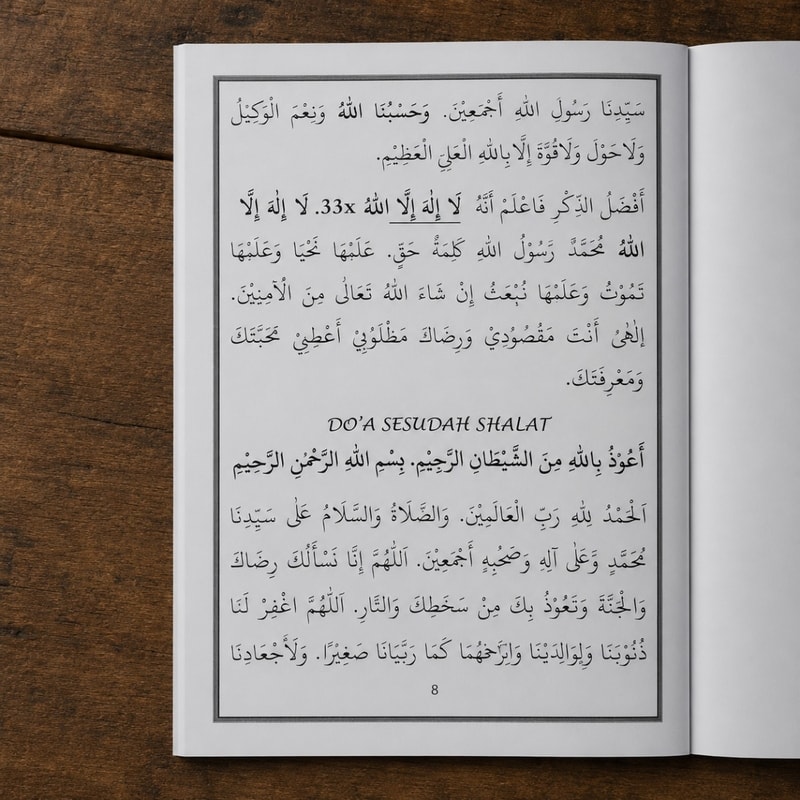 سَيِّدِنَا رَسُولِ اللهِ أَجْمَعِيْنَ. وَحَسْبُنَا اللهُ وَنِعْمَ الْوَكِيْلُ
وَلَاحَوْلَ وَلَاقُوَّةَ إِلَّابِاللهِ الْعَلِيِّ الْعَظِيْمِ.
أَفْضَلُ الذِّكْرِ فَاعْلَمْ أَنَّهُ لَا إِلٰهَ إِلَّا اللهُ 33x. لَا إِلٰهَ إِلَّا
اللهُ مُحَمَّدٌ رَّسُوْلُ اللهِ كَلِمَةُ حَقٍّ. عَلَيْهَا نَحْيَا وَعَلَيْهَا
تَمُوْتُ وَعَلَيْهَا نُبْعَثُ إِنْ شَاءَ اللهُ تَعَالٰى مِنَ الْآمِنِيْنَ.
إِلٰهِيْ أَنْتَ مَقْصُوْدِيْ وَرِضَاكَ مَطْلُوْبِيْ أَعْطِنِيْ مَحَبَّتَكَ
وَمَعْرِفَتَكَ.
DO'A SESUDAH SHALAT
أَعُوْذُ بِاللهِ مِنَ الشَّيْطَانِ الرَّجِيْمِ. بِسْمِ اللهِ الرَّحْمٰنِ الرَّحِيْمِ
اَلْحَمْدُ لِلهِ رَبِّ الْعَالَمِيْنَ. وَالصَّلَاةُ وَالسَّلَامُ عَلٰى سَيِّدِنَا
مُحَمَّدٍ وَّعَلٰى آلِهِ وَصَحْبِهِ أَجْمَعِيْنَ. اَللّٰهُمَّ إِنَّا نَسْأَلُكَ رِضَاكَ
وَالْجَنَّةَ وَنَعُوْذُ بِكَ مِنْ سَخَطِكَ وَالنَّارِ. اَللّٰهُمَّ اغْفِرْ لَنَا
ذُنُوْبَنَا وَلِوَالِدَيْنَا كَمَا رَبَّيَانَا صَغِيْرًا.
8